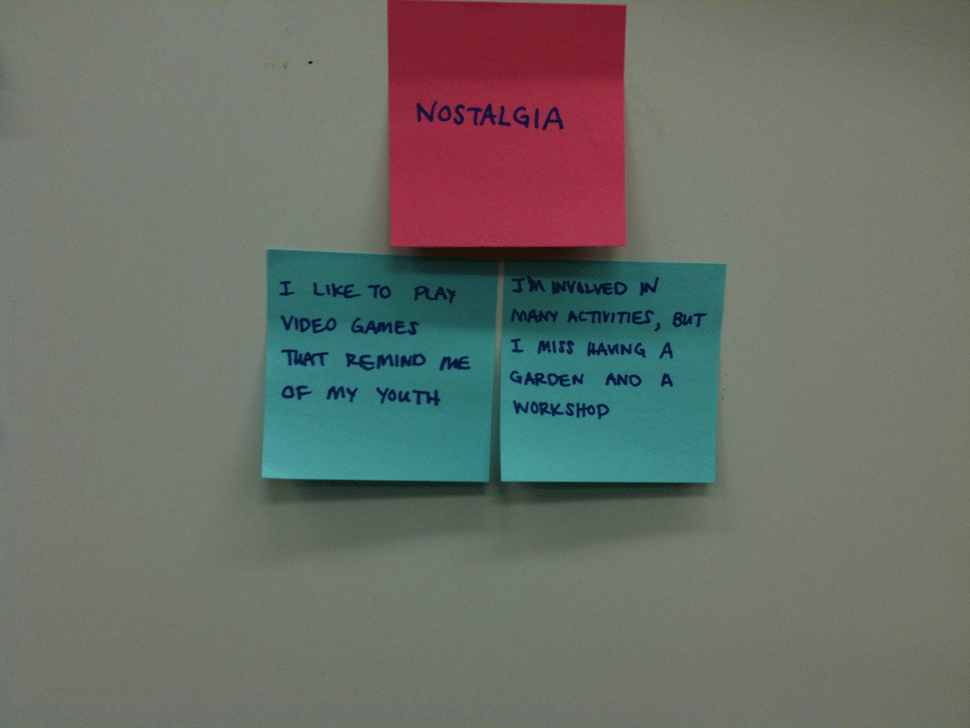 NOSTALGIA
I LIKE TO PLAY
VIDEO GAMES
THAT REMIND ME
OF MY YOUTH
I'M INVOLVED IN
MANY ACTIVITIES, BUT
I MISS HAVING A
GARDEN AND A
WORKSHOP